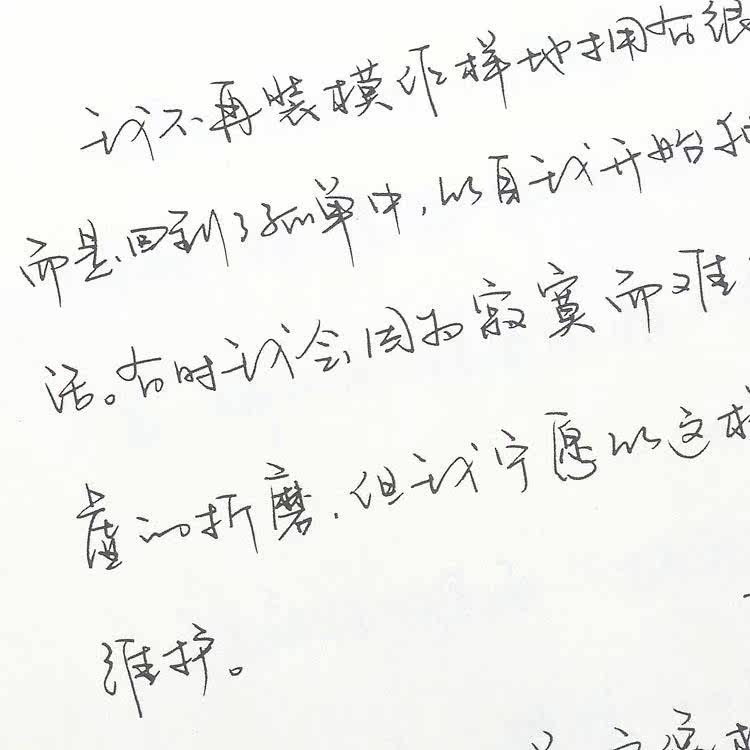 我不再装模作样地拥有很
而是回到了孤单中，以真我开始独
活。有时我会因为寂寞而难
虚的折磨，但我宁愿以这样
维护。